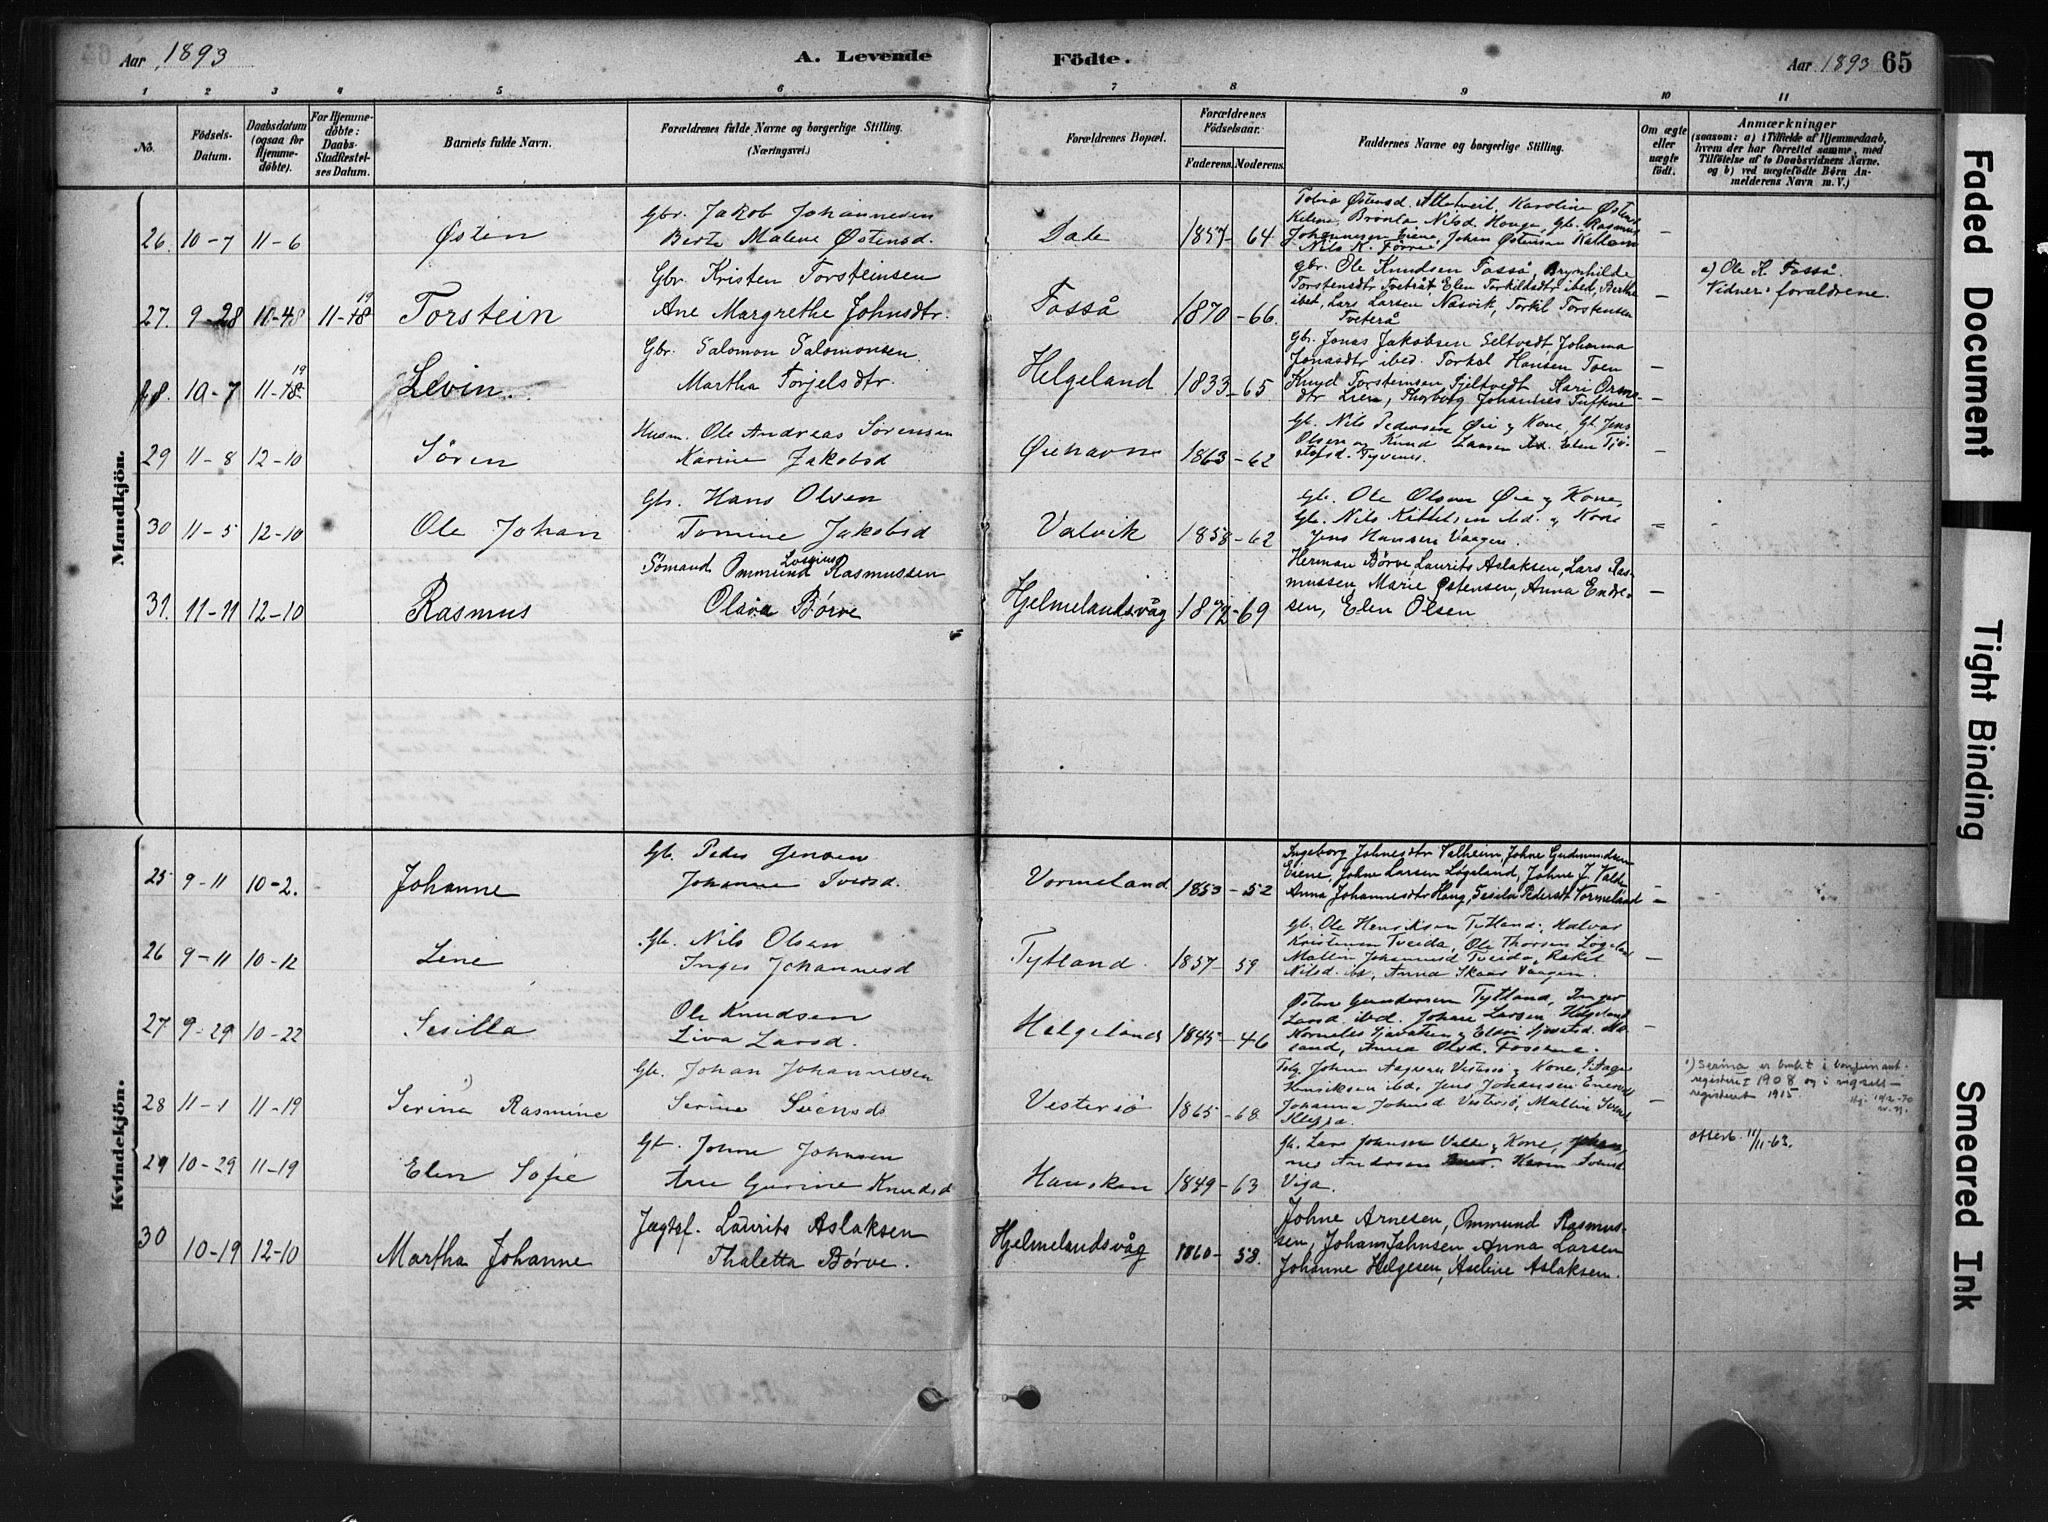 Aar 1893
A. Levende
Födte.
Aar 1893 65
1 2 3 4 5 6 7 8 9 10 11
No.
Födsels-
Datum.
Daabsdatum
(ogsaa for
Hjemme-
döbte).
For Hjemme-
döbte:
Daabs-
Stadfæstel-
ses Datum.
Barnets fulde Navn.
Forældrenes fulde Navne og borgerlige Stilling.
(Næringsvei.)
Forældrenes Bopæl.
Forældrenes
Födselsaar.
Faderens. Moderens.
Faddernes Navne og borgerlige Stilling.
Om ægte
eller
uægte
födt.
Anmærkninger
(saasom: a) i Tilfælde af Hjemmedaab,
hvem der har forrettet samme, med
Tilföielse af to Daabsvidners Navne.
og b) ved uægtefödte Børn An-
melderens Navn m.V.)
Mandkjön.
26. 10-7 11-6 Østen
Gbr. Jakob Johannesen
Berte Malene Østensd.
Dale 1857-64
Johannesen Eiene, Johan Østensen
Nils K. Førre
27. 9-28 11-19 Torstein
Gbr Kristen Torsteinsen
Ane Margrethe Johnsdtr.
Fosså 1870-66
gbr. Ole Knudsen Fosså, Brynhilde
ibed, Lars Larsen Næsvik, Torkil Torstensen
Tveterå
a) Ole K. Fosså.
Vidner: forældrene.
28. 10-7 11-19 Levin.
Gbr. Salomon Salomonsen
Martha Torjelsdtr.
Helgeland 1833-65
Gbr. Jonas Jakobsen Eeltvedt Johanna
Jonasdtr ibed. Torkel Hansen Toen
Knud Torsteinsen Fjeltvedt Kari Orms-
dtr Lien, Thorborg Johannes Tuftene
29 11-8 12-10 Sören
Husm. Ole Andreas Sörensen
Karine Jakobsd
Øiehavn 1863-62
Gb. Nils Pedersen Øie og Kone, Gb. Jens
Olsen og Knud Larsen
30 11-5 12-10 Ole Johan
Gbr. Hans Olsen
Tomine Jakobsd
Valvik 1858-62
Gb. Ole Olsen Øie og Kone,
Gb. Nils Kittelsen ibd. og Kone
Jens Hansen Vaagen.
31. 11-11 12-10 Rasmus
Sömand. Ommund Rasmussen
Olava Börve
Hjelmelandsvåg 1872-69
Herman Börve Laurits Aslaksen, Lars Ras-
mussen, Marie Østensen, Anna Endre-
sen, Elen Olsen
Kvindekjön.
25 9-11 10-2. Johanne
Gb. Peder Jensen
Johanne Iversd.
Vormeland 1853-52
Ingeborg Johnsdtr Valheim, Johne Gudmundsen
Eiene, Johne Larsen Løgeland, Johne J. Valde
Anna Johannesdtr Haug, Sesila Pedersdt Vormeland
26 9-11 10-12 Line
Gb. Nils Olsen
Inger Johannesd
Tytland. 1857-59
Gb. Ole Henriksen Tytland. Halvor
Kristensen Tveida, Ole Thorsen Løgeland
Mallin Johannesd Tveida, Rakel
Nilsd. ib., Anna Skaar Vaagen.
27 9-29 10-22 Sesilla
Ole Knudsen
Liva Larsd.
Helgeland 1845-46
Østen Gundersen Tytland, Inger
Larsd ibd. Johan Larsen Helgeland
sand, Anna Olsd. Fossene.
28 11-1 11-19 Serina Rasmine
Gb. Johan Johannesen
Serine Svensd
Vestersö 1865-68
Johanna Johnsd Vestersö, Mallin Svend
1) Serina er brukt i konfirmant-
registeret 1908 og i vigsels-
registeret 1915.
29 10-29 11-19 Elen Sofie
Gb. Johne Johnsen
Ane Gurine Knudsd
Hausken 1849-63
Gb. Lars Johnsen Valde og Kone, Johan-
nes Andersen Karen Svensd
Viga.
atterb. 11/11-63.
30 10-19 12-10 Martha Johanne
Jagtsf. Laurits Aslaksen
Thaletta Börve.
Hjelmelandsvåg 1860-58.
Johne Arnesen, Ommund Rasmus-
sen, Johans Johnsen, Anna Larsen
Johanne Helgesen, Aseline Aslaksen.
Faded Document
Tight Binding
Smeared Ink